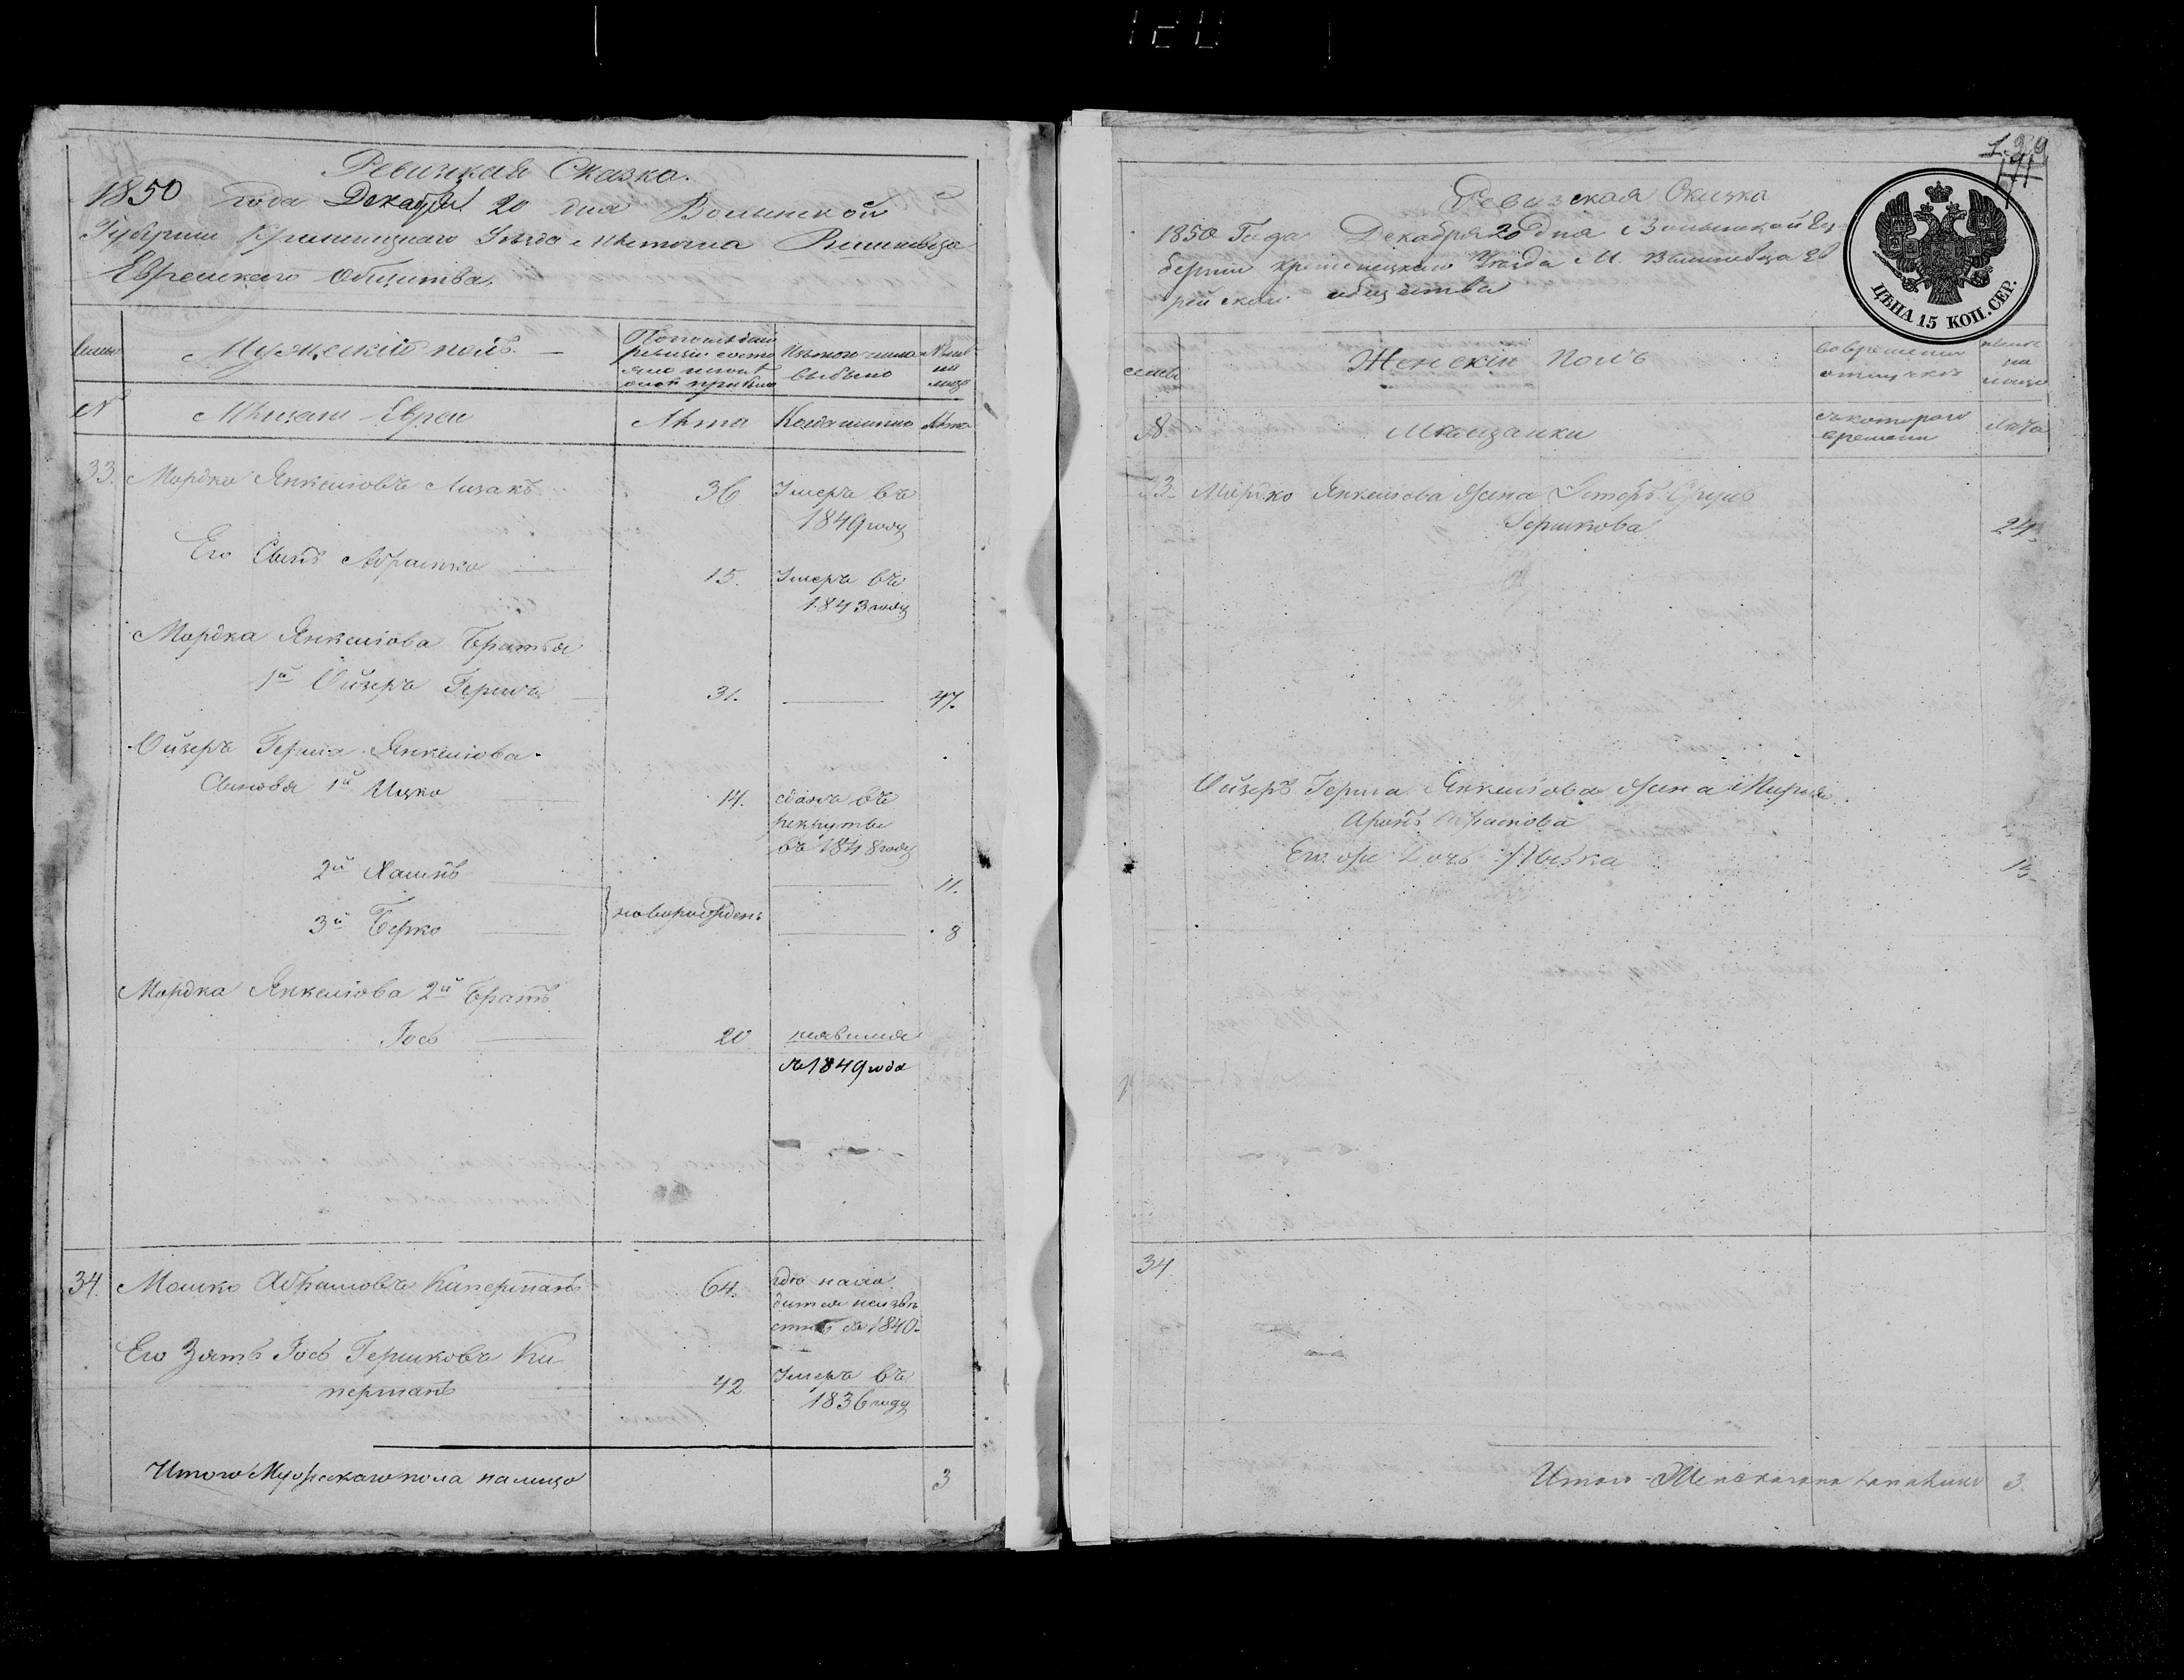 Ревичкая Сказка.
1850 года Декабря 20 дня Волынской
Губернии Кременецкаго Уезда местечка Вишневца
Еврейскаго Общества.
Мужескій полъ. —
По последней
ревизіи состо
яло и после
оной прибыло
Изъ того числа
выбыло
Ныне
на
лицо
№
Мещане Евреи
Лета
Когда именно
Лета
33. Мордко Янкелiовъ Лизакъ 36 Умеръ въ
1849 году
Его Сынъ Абрамко — 15. Умеръ въ
1843 году
Мордка Янкелiова Братья
1й Ойзеръ Герша — 31. — 47.
Ойзеръ Герша Янкелiова
Сыновья 1й Ицко — 14. сданъ въ
рекруты
въ 1848 году
2й Хаимъ — — 11.
новорожденъ
3й Берко — — 8
Мордка Янкелiова 2й Братъ
Іось — 20 неявился
съ 1849 года
34. Мошко Абрамовъ Киперманъ 64. где нахо
дится неизве
стно съ 1840.
Его Зять Іось Гершковъ Ки
перманъ 42 Умеръ въ
1836 году
Итого Мужескаго пола налицо 3
Ревизская Сказка
ЦѢНА 15 КОП. СЕР.
1850 Года Декабря 20 Дня Волынской Гу
берніи Кременецкаго Уезда М. Вишневца Ев
рейскаго общества
семьи
Женскій Полъ
во временной
отлучке
ныне
на
лицо
№
Мещанки
съ котораго
времени
Лета
33. Мордко Янкелiова Жена Естеръ
Гершкова 24.
Ойзеръ Герша Янкелiова Жена
Аронъ Абрамкова
Его же Дочь Ривка 13.
34
Итого Женскаго пола налицо 3.